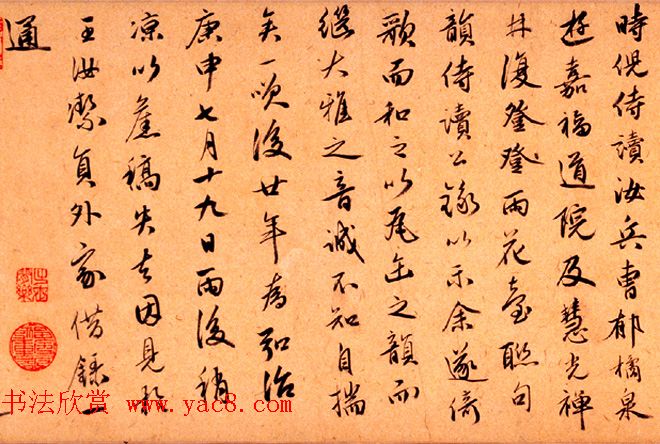 時倪侍讀汝兵曹郁橘泉
遊嘉福道院及慧光禪
復登雨花臺聯句
韻侍讀公錄以示余遂倚
歌而和之以瓦缶之韻而
繼大雅之音誠不知自揣
矣一笑後廿年為弘治
庚申七月十九日雨後稍
凉以舊稿失去因見於
王汝潔員外家借錄一
通
书法欣赏 www.yac8.com